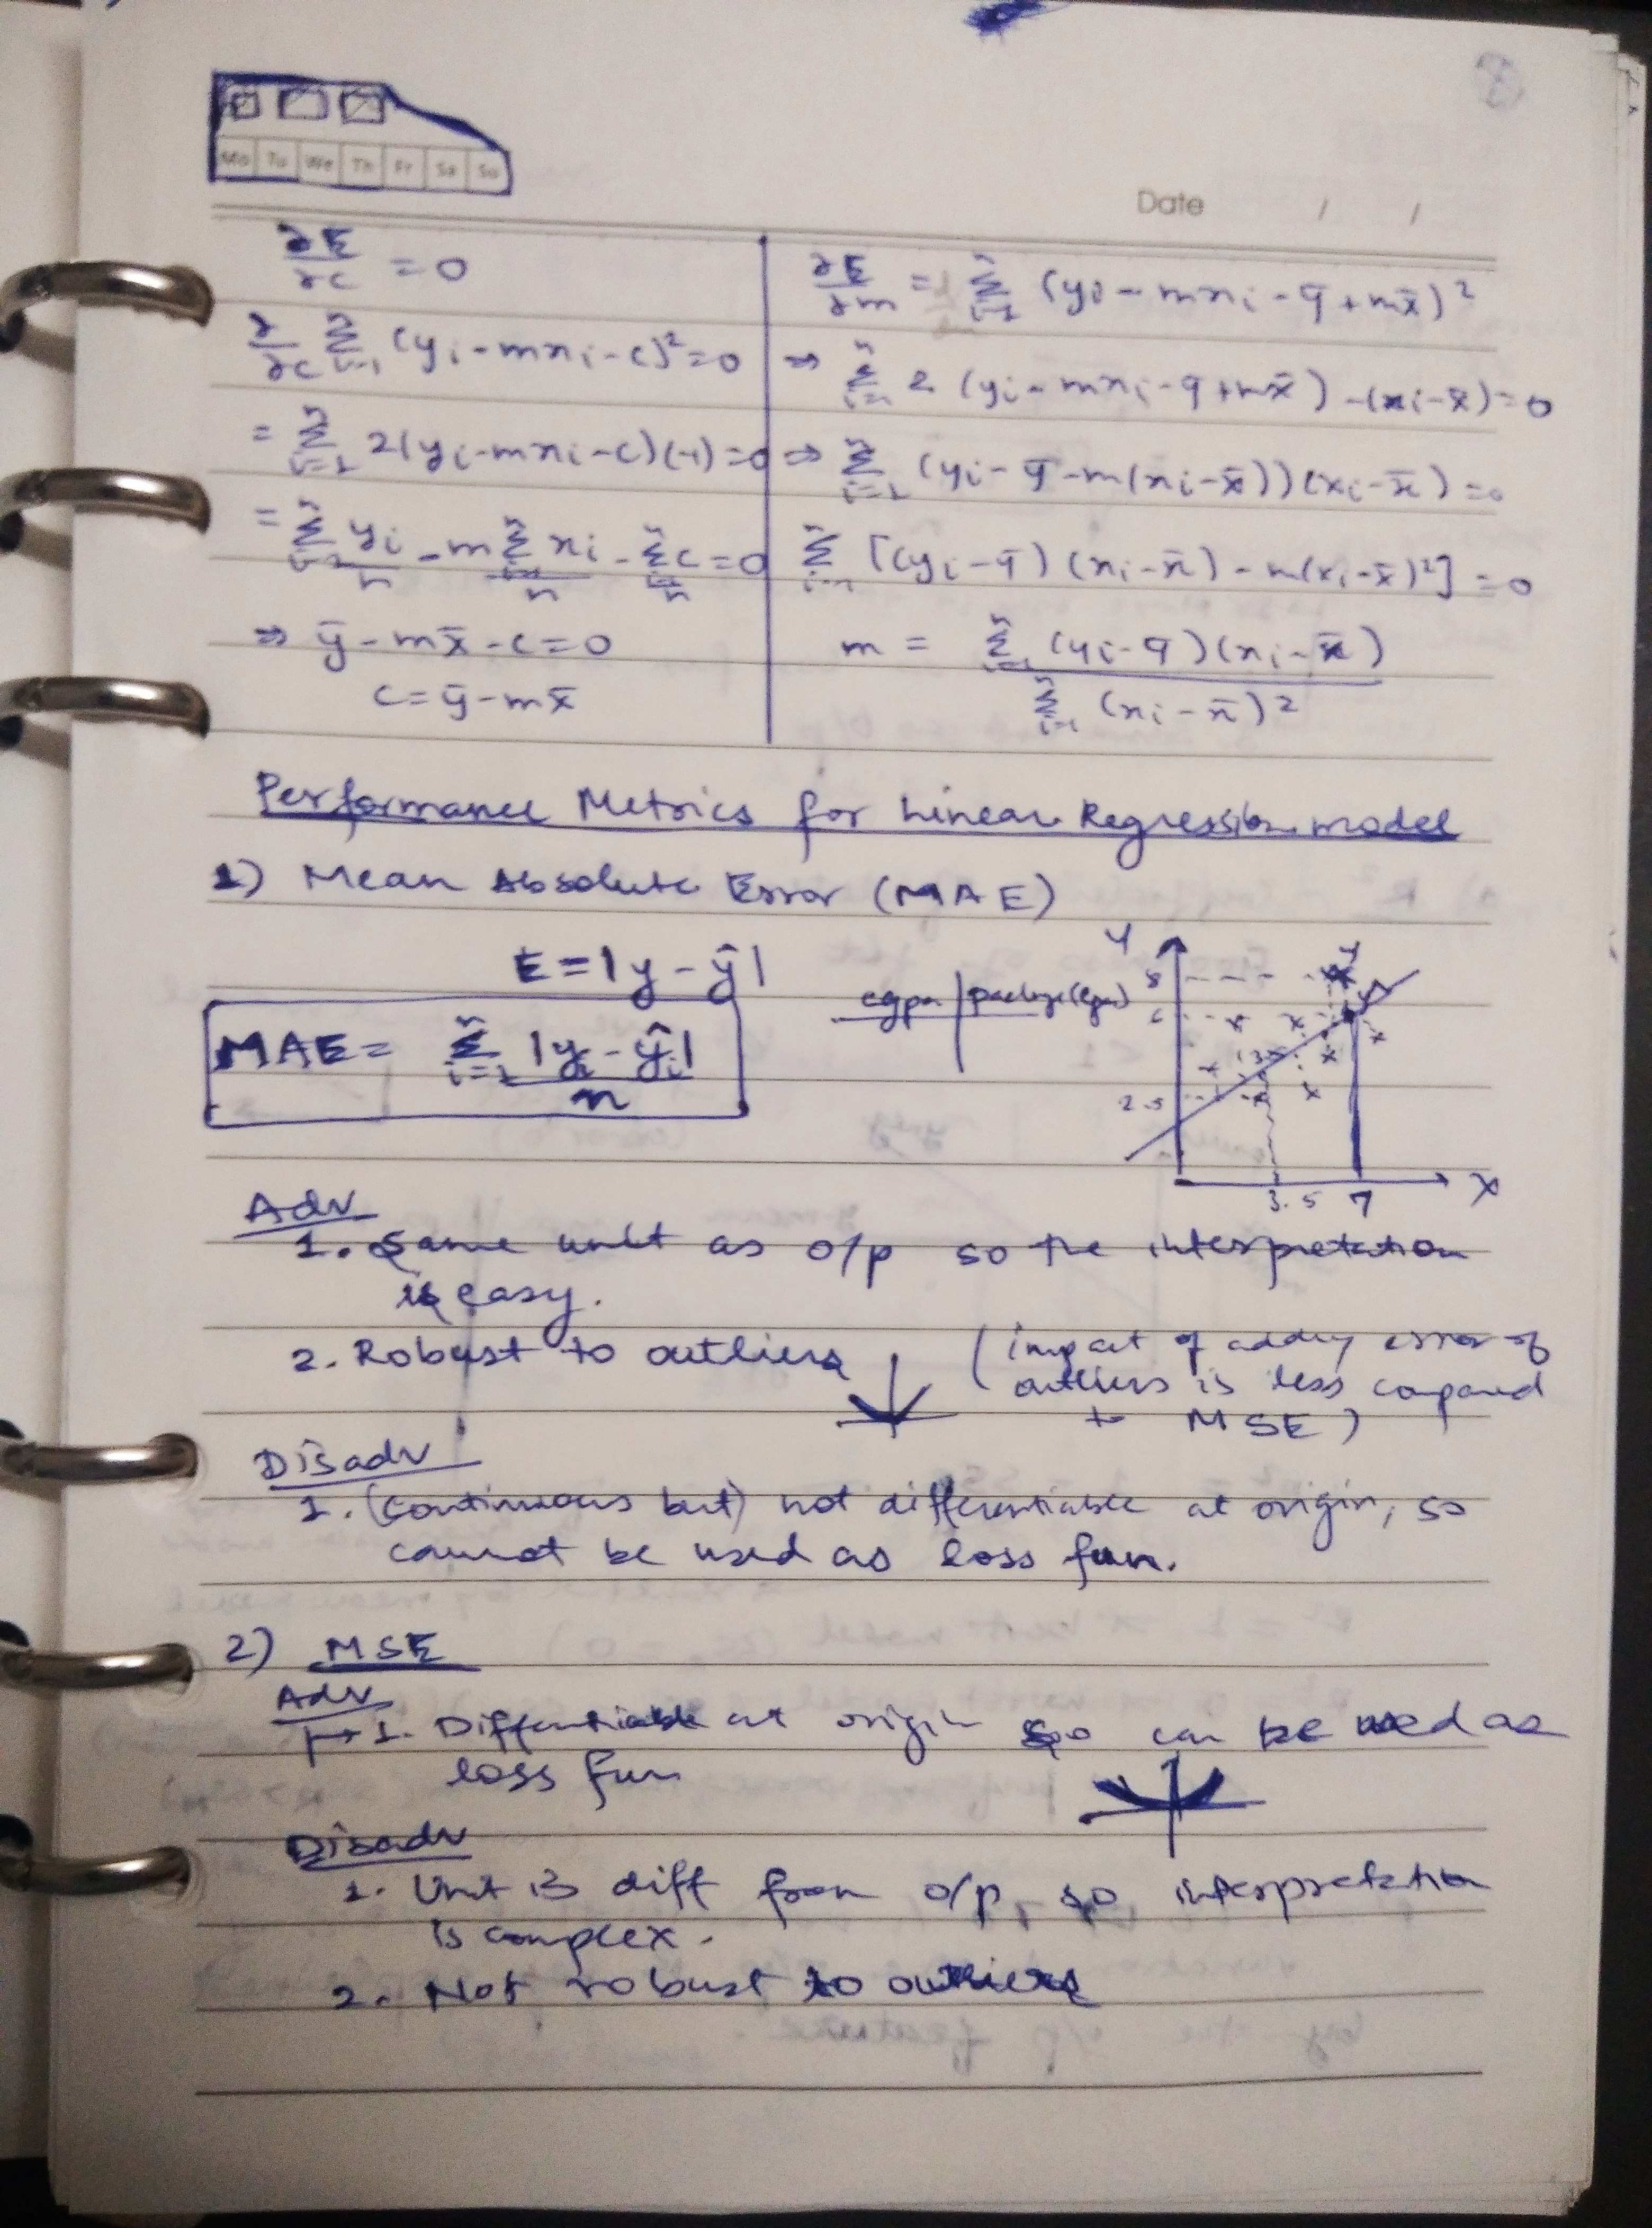 Mo Tu We Th Fr Sa Su
Date / /
∂E/∂c = 0
∂/∂c Σ_{i=1}^{n} (yi - mxi - c)² = 0
= Σ_{i=1}^{n} 2(yi - mxi - c)(-1) = 0
= Σ_{i=1}^{n} yi/n - m Σ_{i=1}^{n} xi/n - Σ_{i=1}^{n} c/n = 0
⇒ ȳ - mx̄ - c = 0
c = ȳ - mx̄
∂E/∂m = Σ_{i=1}^{n} (yi - mxi - ȳ + mx̄)²
⇒ Σ_{i=1}^{n} 2 (yi - mxi - ȳ + mx̄) -(xi - x̄) = 0
⇒ Σ_{i=1}^{n} (yi - ȳ - m(xi - x̄))(xi - x̄) = 0
Σ_{i=1}^{n} [(yi - ȳ)(xi - x̄) - m(xi - x̄)²] = 0
m = Σ_{i=1}^{n} (yi - ȳ)(xi - x̄)
Σ_{i=1}^{n} (xi - x̄)²
Performance Metrics for Linear Regression model
1) Mean Absolute Error (MAE)
E = |y - ŷ|
MAE = Σ_{i=1}^{n} |yi - ŷi|
n
cgpa | package(lpa)
Y
8
y
6
2.5
3.5 7 X
Adv
1. Same unit as o/p so the interpretation
is easy.
2. Robust to outliers (impact of adding error of
outliers is less compared
to MSE)
Disadv
1. (continuous but) not differentiable at origin, so
cannot be used as loss fun.
2) MSE
Adv
1. Differentiable at origin so can be used as
loss fun
Disadv
1. Unit is diff from o/p, so interpretation
is complex.
2. Not robust to outliers